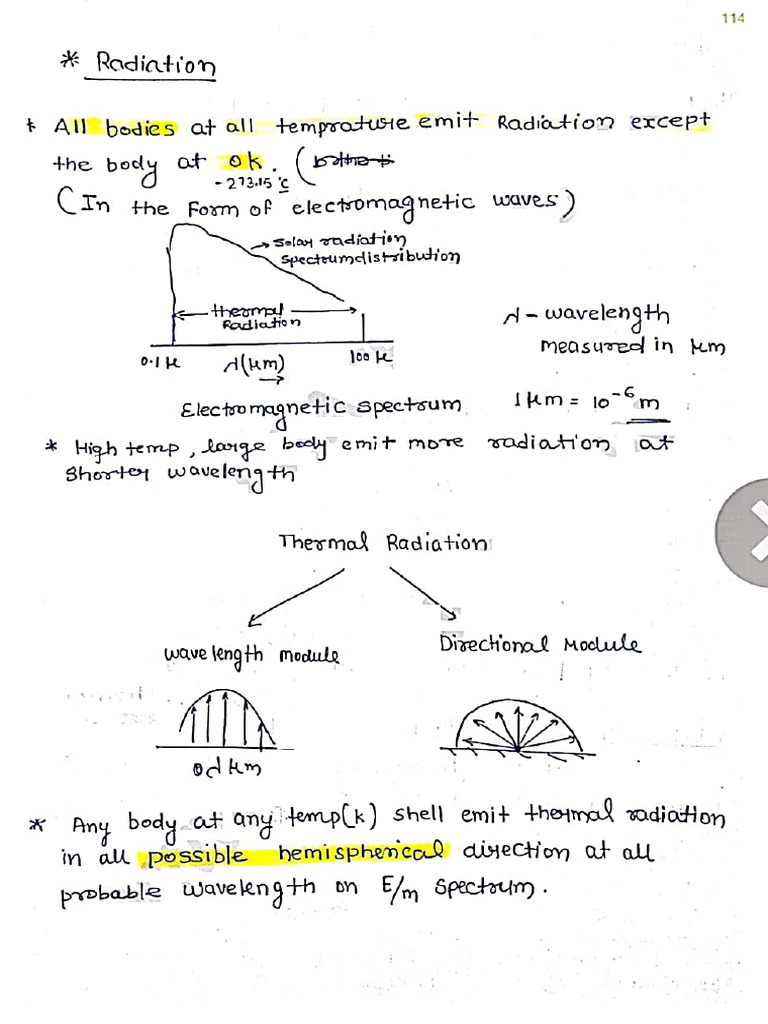 114
* Radiation
* All bodies at all temprature emit Radiation except
the body at 0k. (
-273.15 °c
(In the Form of electromagnetic waves)
→ Solar radiation
Spectrumdistribution
thermal
Radiation
λ - wavelength
measured in μm
0.1 μ λ(μm) 100 μ
Electromagnetic spectrum 1 μm = 10⁻⁶ m
* High temp, large body emit more radiation at
Shorter wavelength
Thermal Radiation
wavelength module
Directional Module
* Any body at any temp(k) shell emit thermal radiation
in all possible hemispherical direction at all
probable wavelength on E/m Spectrum.